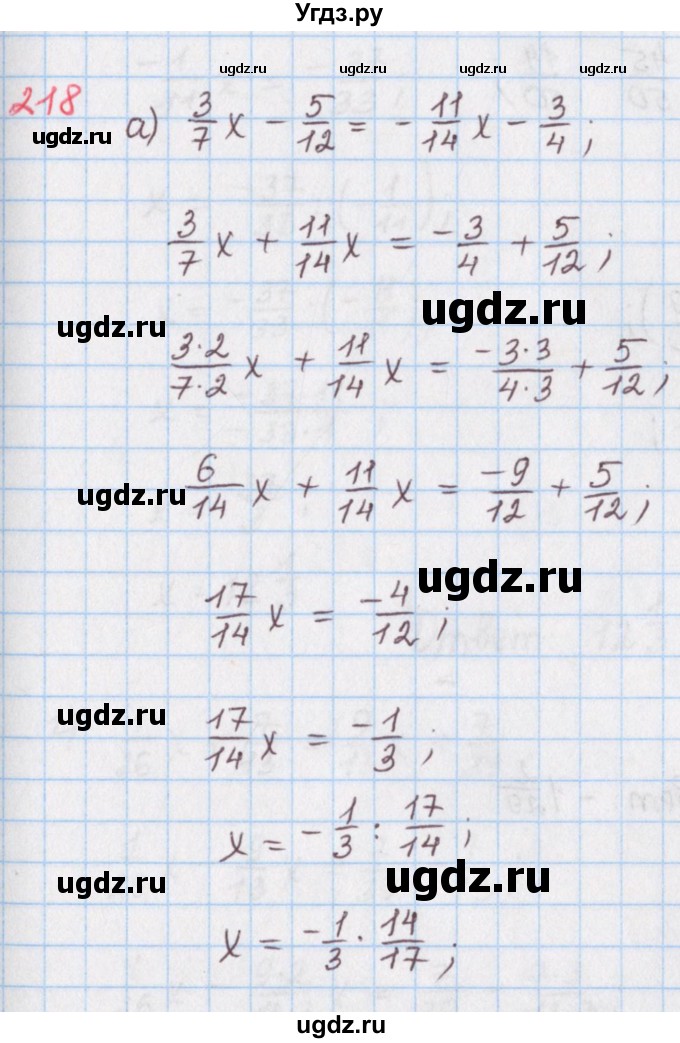 Угдз.ру
ugdz.ru ugdz.ru ugdz.ru
218
ugdz.ru
а) 3/7 x - 5/12 = - 11/14 x - 3/4;
3/7 x + 11/14 x = -3/4 + 5/12;
ugdz.ru
ugdz.ru
3·2/7·2 x + 11/14 x = -3·3/4·3 + 5/12;
ugdz.ru
6/14 x + 11/14 x = -9/12 + 5/12;
ugdz.ru
17/14 x = -4/12;
ugdz.ru
17/14 x = -1/3;
x = -1/3 : 17/14;
ugdz.ru
ugdz.ru
x = -1/3 · 14/17;
ugdz.ru